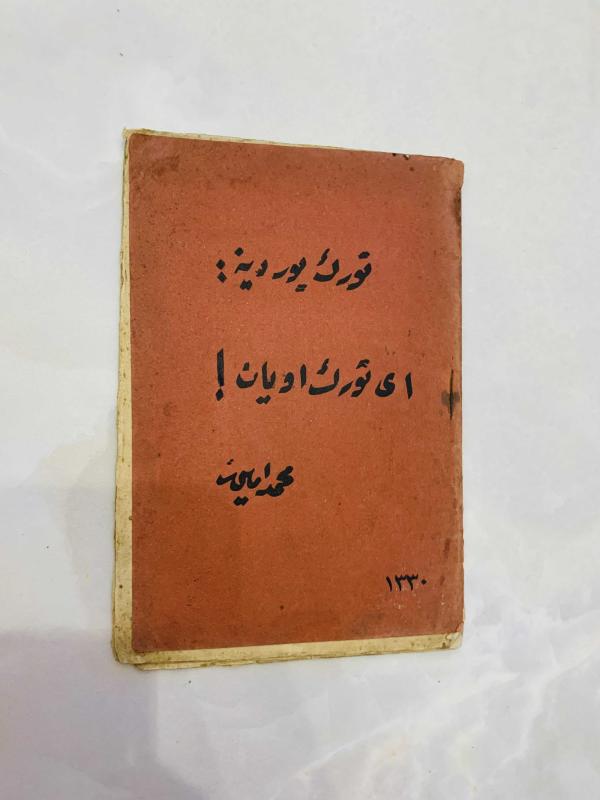 تورك یوردینه :
ای تورك اویان !
محمد امین
١٣٣٠